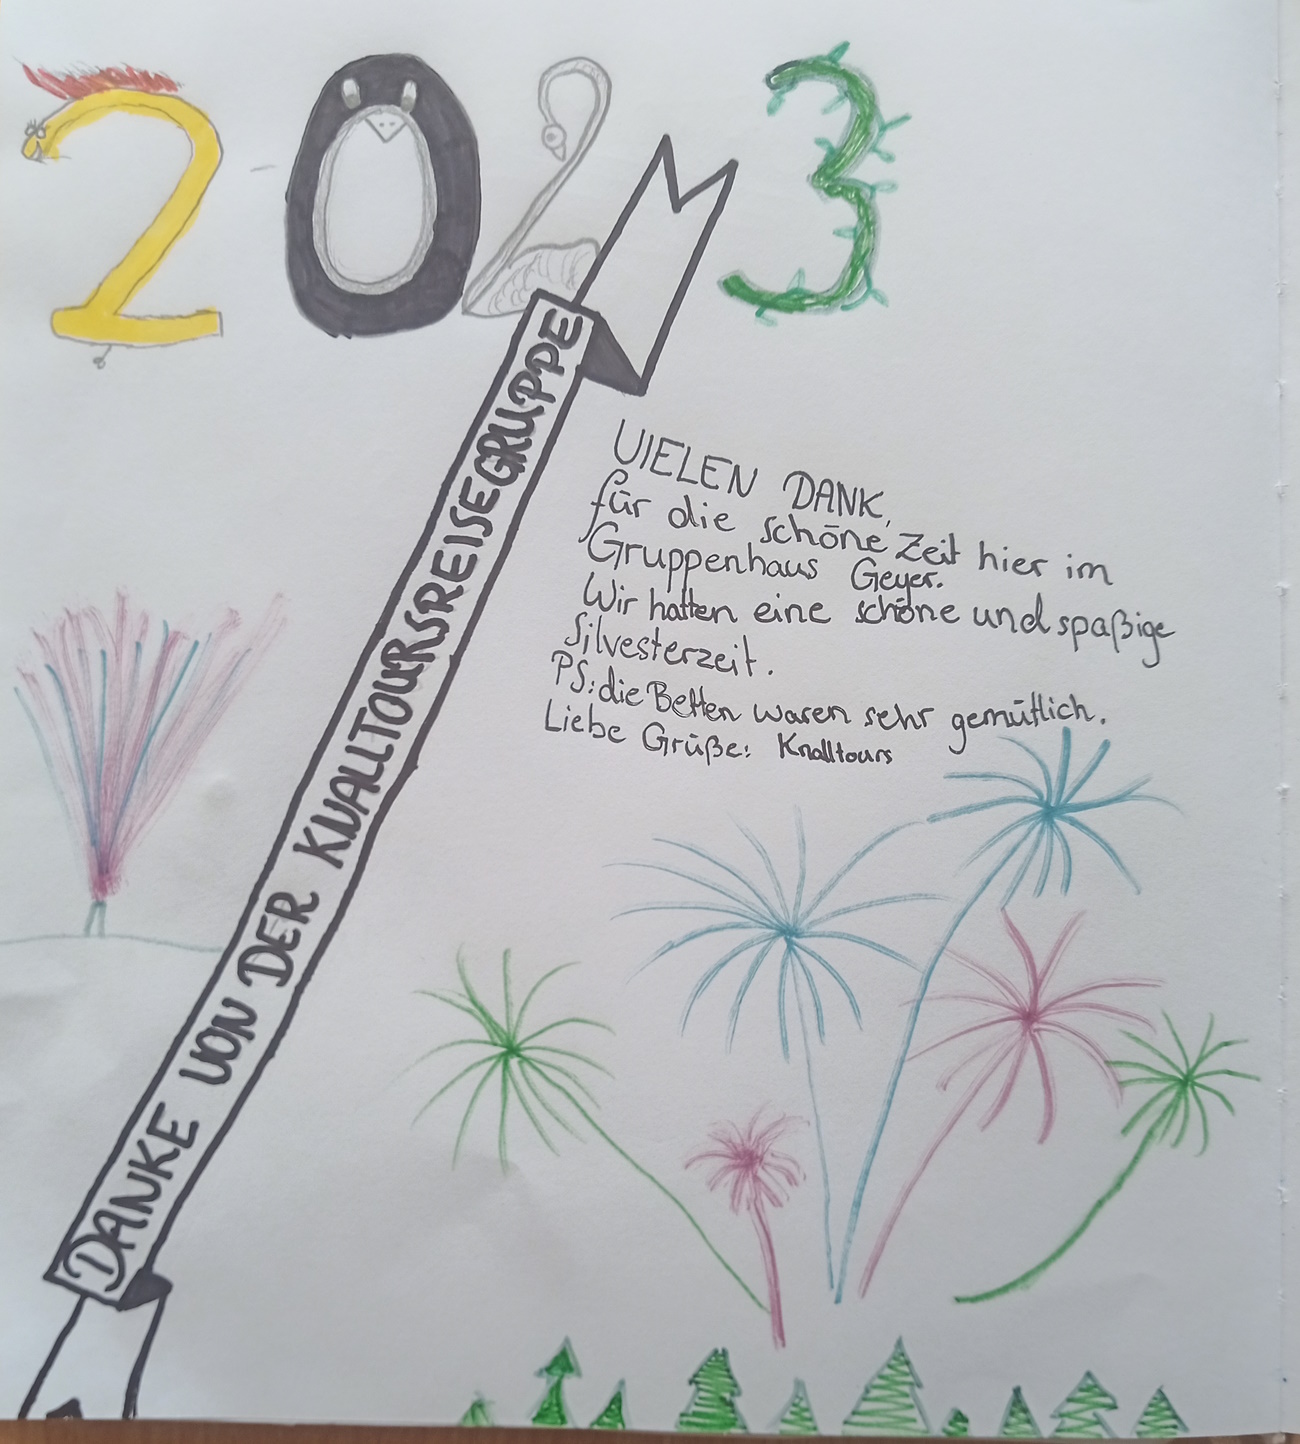 2023
DANKE VON DER KNALLTOURSREISEGRUPPE
VIELEN DANK,
für die schöne Zeit hier im
Gruppenhaus Geyer.
Wir hatten eine schöne und spaßige
Silvesterzeit.
PS: die Betten waren sehr gemütlich.
Liebe Grüße: Knalltours